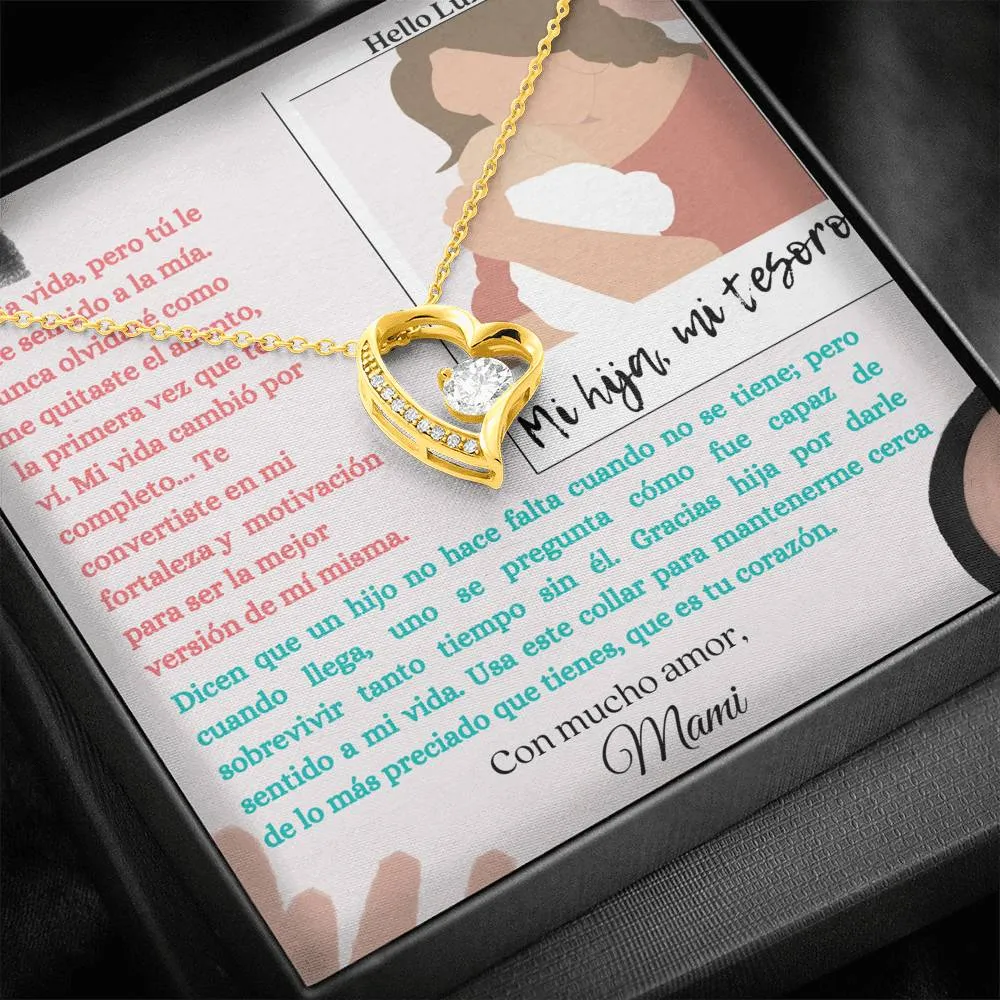 Hello
vida, pero tú le
sentido a la mía.
olvidé como
me quitaste el aliento,
la primera vez que te
ví. Mi vida cambió por
completo... Te
convertiste en mi
fortaleza y motivación
para ser la mejor
versión de mí misma.
Mi hija, mi tesoro
Dicen que un hijo no hace falta cuando no se tiene; pero
cuando llega, uno se pregunta cómo fue capaz de
sobrevivir tanto tiempo sin él. Gracias hija por darle
sentido a mi vida. Usa este collar para mantenerme cerca
de lo más preciado que tienes, que es tu corazón.
Con mucho amor,
Mami